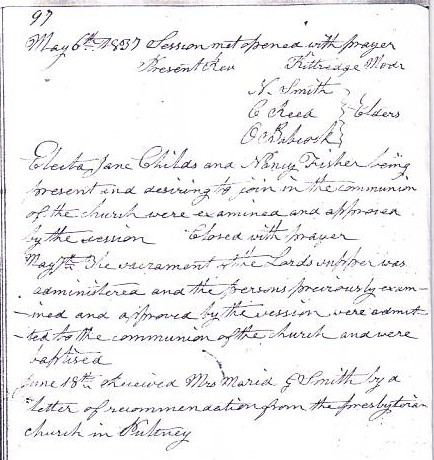 97
May 6th 1837 Session met opened with prayer
Present Rev Kittridge Modr
N. Smith
E Reed } Elders
O Babcock
Electa Jane Childs and Nancy Fisher being
present and desiring to join in the communion
of the church were examined and approved
by the session Closed with prayer
May 7th The sacrament of the Lords supper was
administered and the persons previously exam-
-ined and approved by the session were admit-
-ted to the communion of the church and were
baptised
June 18th Received Mrs Maria G Smith by a
letter of recommendation from the presbyterian
church in Pultney